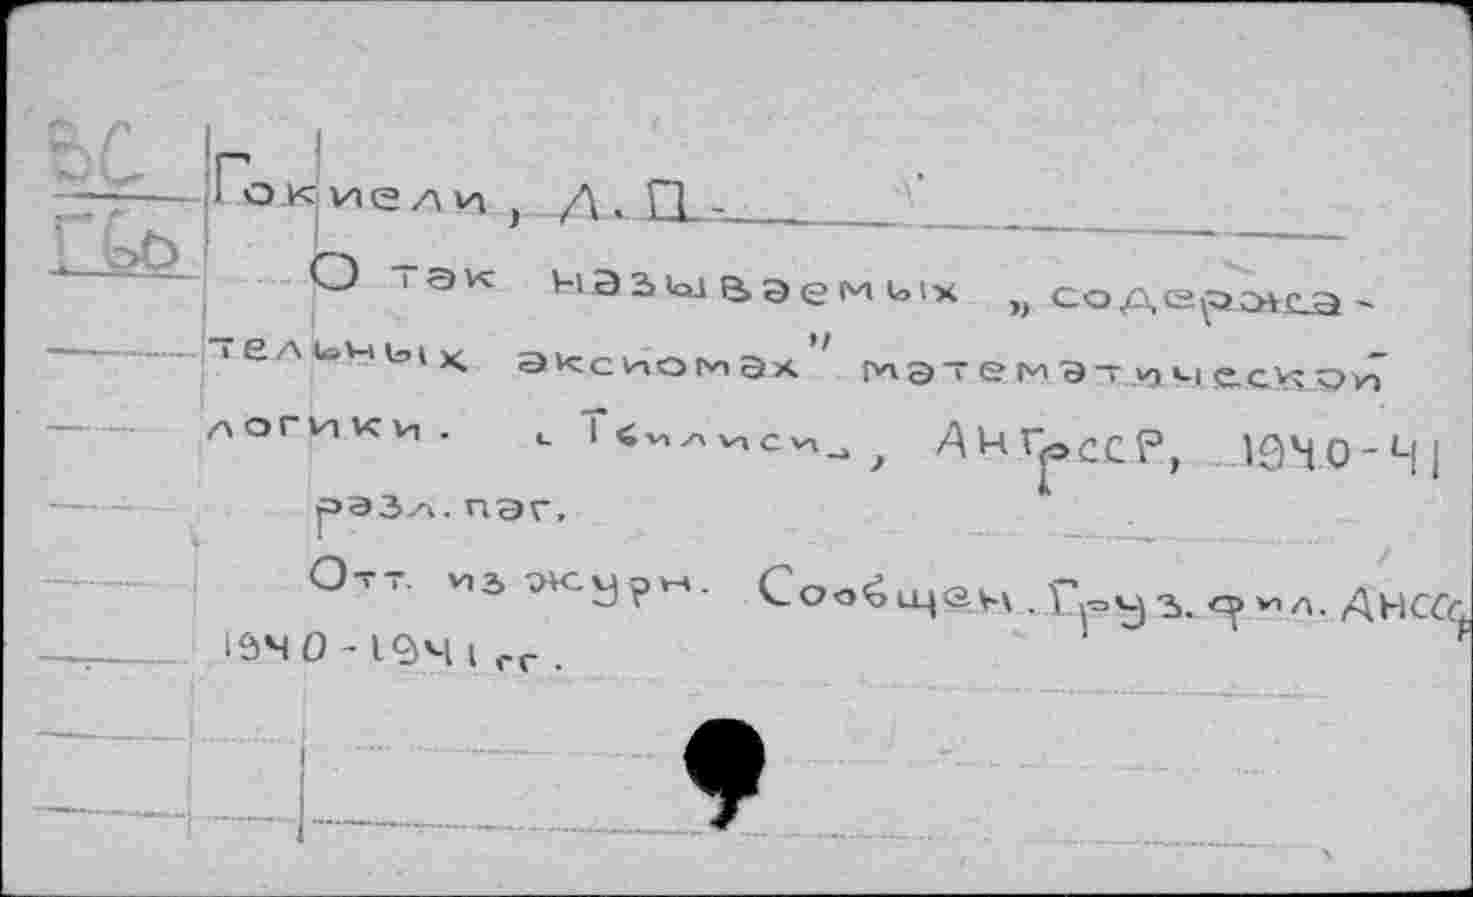 ВС
Гокиели, Л. П.
Г65
О так называемых „содержа-
тельных аксиомах" математической
логики. [Тбилиси], АНГрССР, 1940-41
разл. паг.
Отт. из журн. Сообщен. Груз. фил. АНССР
1940-1941 гг.